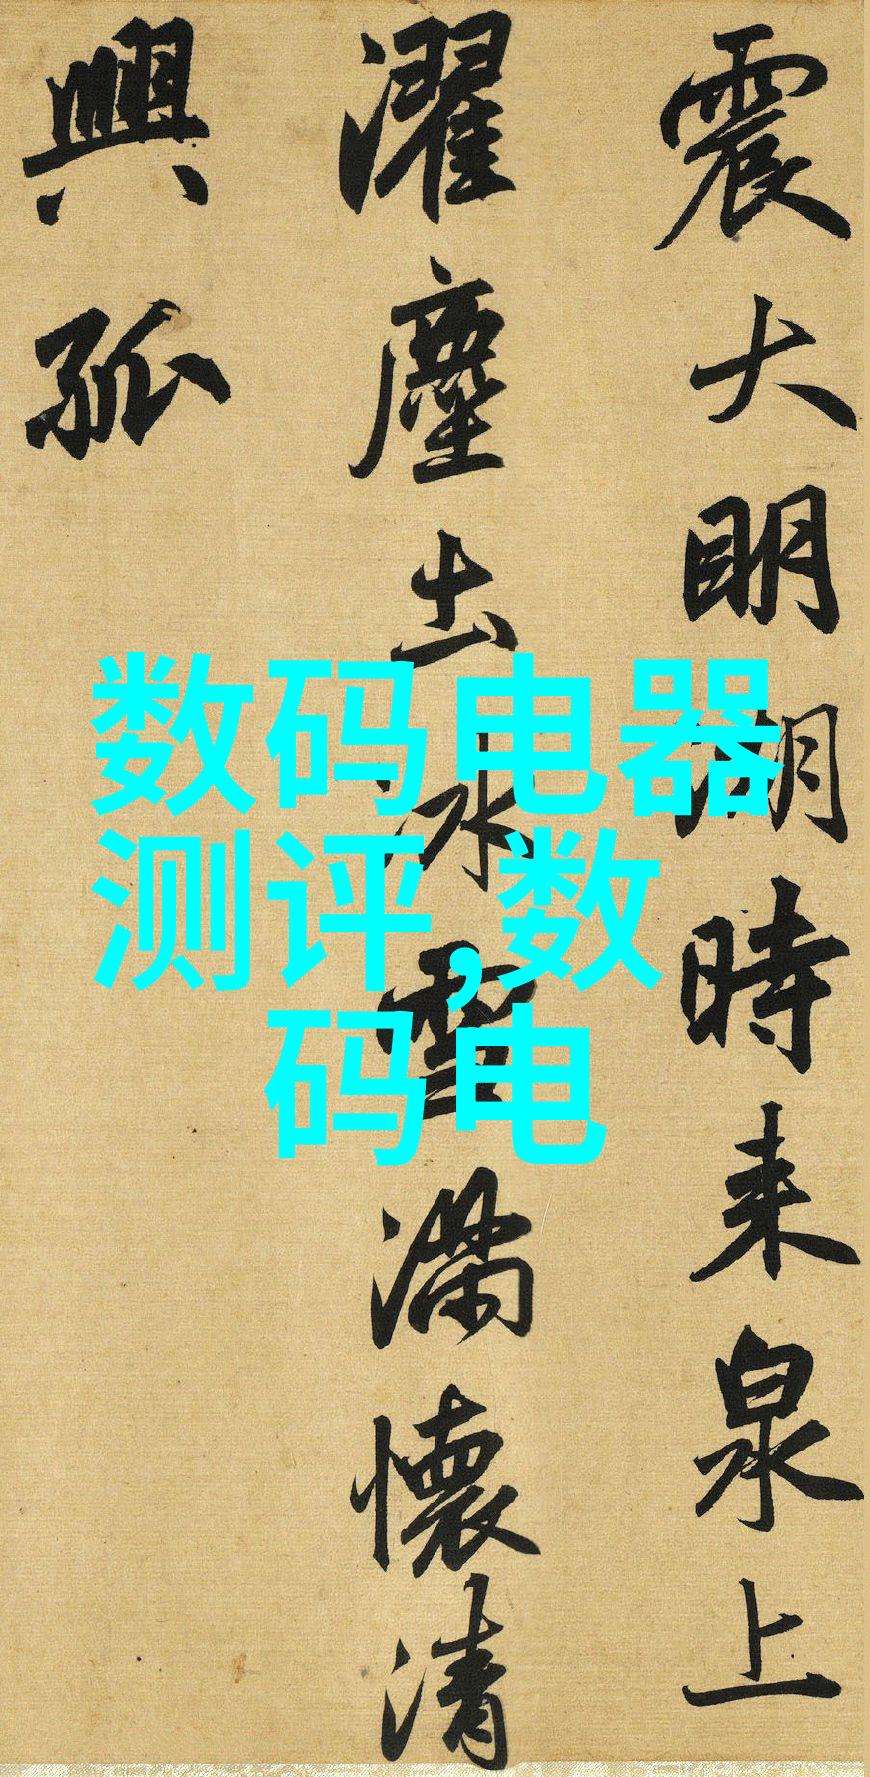 震大明湖時来泉上
濯塵土冰雪滿懷清
興孤
数码电器
测评,数
码电